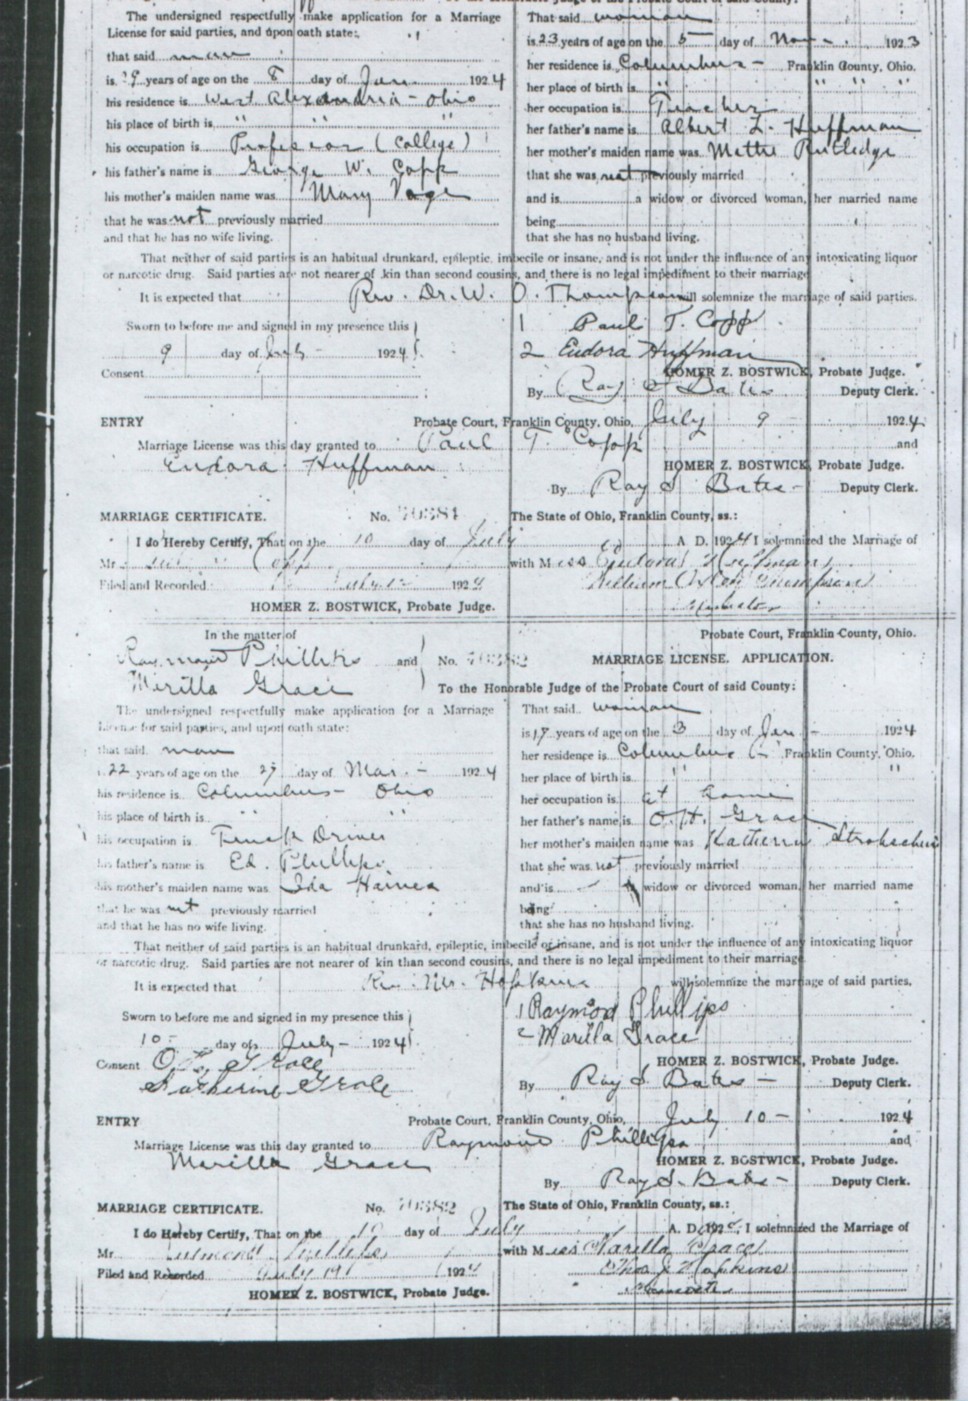 The undersigned respectfully make application for a Marriage
License for said parties, and upon oath state:
that said man
is 9 years of age on the 8 day of Jan. 1924
his residence is West Alexandria - Ohio
his place of birth is " " "
his occupation is Professor (College)
his father's name is George W. Copp
his mother's maiden name was Mary
that he was not previously married
and that he has no wife living.
That said woman
is 23 years of age on the 5 day of Nov. 1923
her residence is Columbus - Franklin County, Ohio.
her place of birth is " " " "
her occupation is Teacher
her father's name is Albert L. Huffman
her mother's maiden name was Mattie Rutledge
that she was not previously married
and is a widow or divorced woman, her married name
being
that she has no husband living.
That neither of said parties is an habitual drunkard, epileptic, imbecile or insane, and is not under the influence of any intoxicating liquor
or narcotic drug. Said parties are not nearer of kin than second cousins, and there is no legal impediment to their marriage
It is expected that Rev. Dr. W. O. Thompson will solemnize the marriage of said parties.
Sworn to before me and signed in my presence this
9 day of July - 1924
Consent
1 Paul T. Copp
2 Eudora Huffman
HOMER Z. BOSTWICK, Probate Judge.
By Ray S Bates Deputy Clerk.
ENTRY Probate Court, Franklin County, Ohio, July 9 1924
Marriage License was this day granted to Paul T. Copp and
Eudora Huffman
HOMER Z. BOSTWICK, Probate Judge.
By Ray S Bates - Deputy Clerk.
MARRIAGE CERTIFICATE. No. 70381 The State of Ohio, Franklin County, ss.:
I do Hereby Certify, That on the 10 day of July A. D. 1924 I solemnized the Marriage of
Mr Copp with Miss Eudora Huffman
Filed and Recorded July 12 1924 William Oxley Thompson
HOMER Z. BOSTWICK, Probate Judge. Minister
In the matter of Probate Court, Franklin County, Ohio.
Raymond Phillips and No. 70382 MARRIAGE LICENSE. APPLICATION.
Marilla Grace To the Honorable Judge of the Probate Court of said County:
The undersigned respectfully make application for a Marriage
License for said parties, and upon oath state:
that said man
is 22 years of age on the 27 day of Mar. - 1924
his residence is Columbus - Ohio
his place of birth is " "
his occupation is Truck Driver
his father's name is Ed. Phillips
his mother's maiden name was Ida Haines
that he was not previously married
and that he has no wife living.
That said woman
is years of age on the 3 day of Jan - 1924
her residence is Columbus Franklin County, Ohio.
her place of birth is " "
her occupation is at home
her father's name is O. H. Grace
her mother's maiden name was Katherine
that she was not previously married
and is a widow or divorced woman, her married name
being
that she has no husband living.
That neither of said parties is an habitual drunkard, epileptic, imbecile or insane, and is not under the influence of any intoxicating liquor
or narcotic drug. Said parties are not nearer of kin than second cousins, and there is no legal impediment to their marriage
It is expected that Rev. Mr. Hopkins will solemnize the marriage of said parties.
Sworn to before me and signed in my presence this
10 - day of July - 1924
Consent O. H. Grace
Katherine Grace
1 Raymond Phillips
2 Marilla Grace
HOMER Z. BOSTWICK, Probate Judge.
By Ray S. Bates - Deputy Clerk.
ENTRY Probate Court, Franklin County, Ohio, July 10 - 1924
Marriage License was this day granted to Raymond Phillips and
Marilla Grace
HOMER Z. BOSTWICK, Probate Judge.
By Ray S. Bates - Deputy Clerk.
MARRIAGE CERTIFICATE. No. 70382 The State of Ohio, Franklin County, ss.:
I do Hereby Certify, That on the 10 day of July A. D. 192 I solemnized the Marriage of
Mr Phillips with Miss Marilla Grace
Filed and Recorded July 1924 Hopkins
HOMER Z. BOSTWICK, Probate Judge.